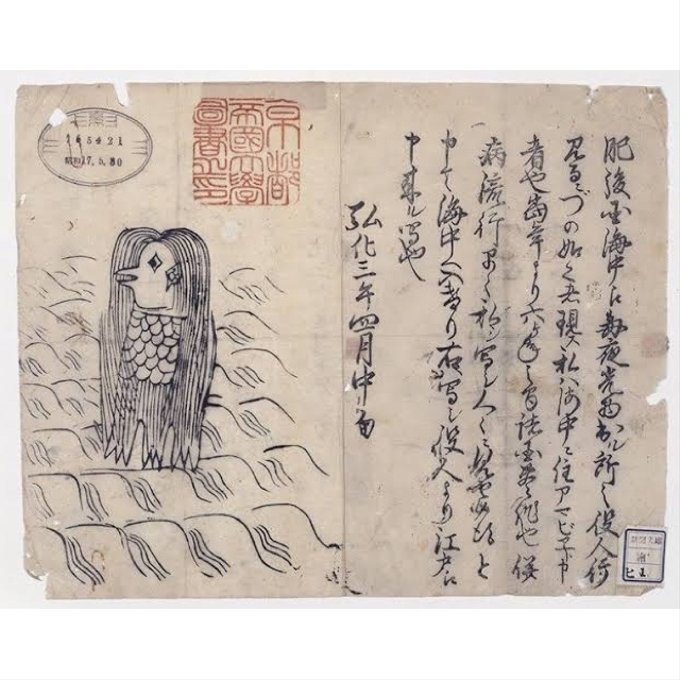 肥後国海中え毎夜光物出ル所之役人行
見るニづの如之者現ス私ハ海中ニ住アマビヱト申
者也当年より六ヶ年之間諸国豊作也併
病流行早々私シ写シ人々ニ見セ候得と
申て海中へ入けり右ハ写シ役人より江戸え
申来ル写也
弘化三年四月中旬
京都
帝國大學
圖書之印
165421
昭和17.5.30